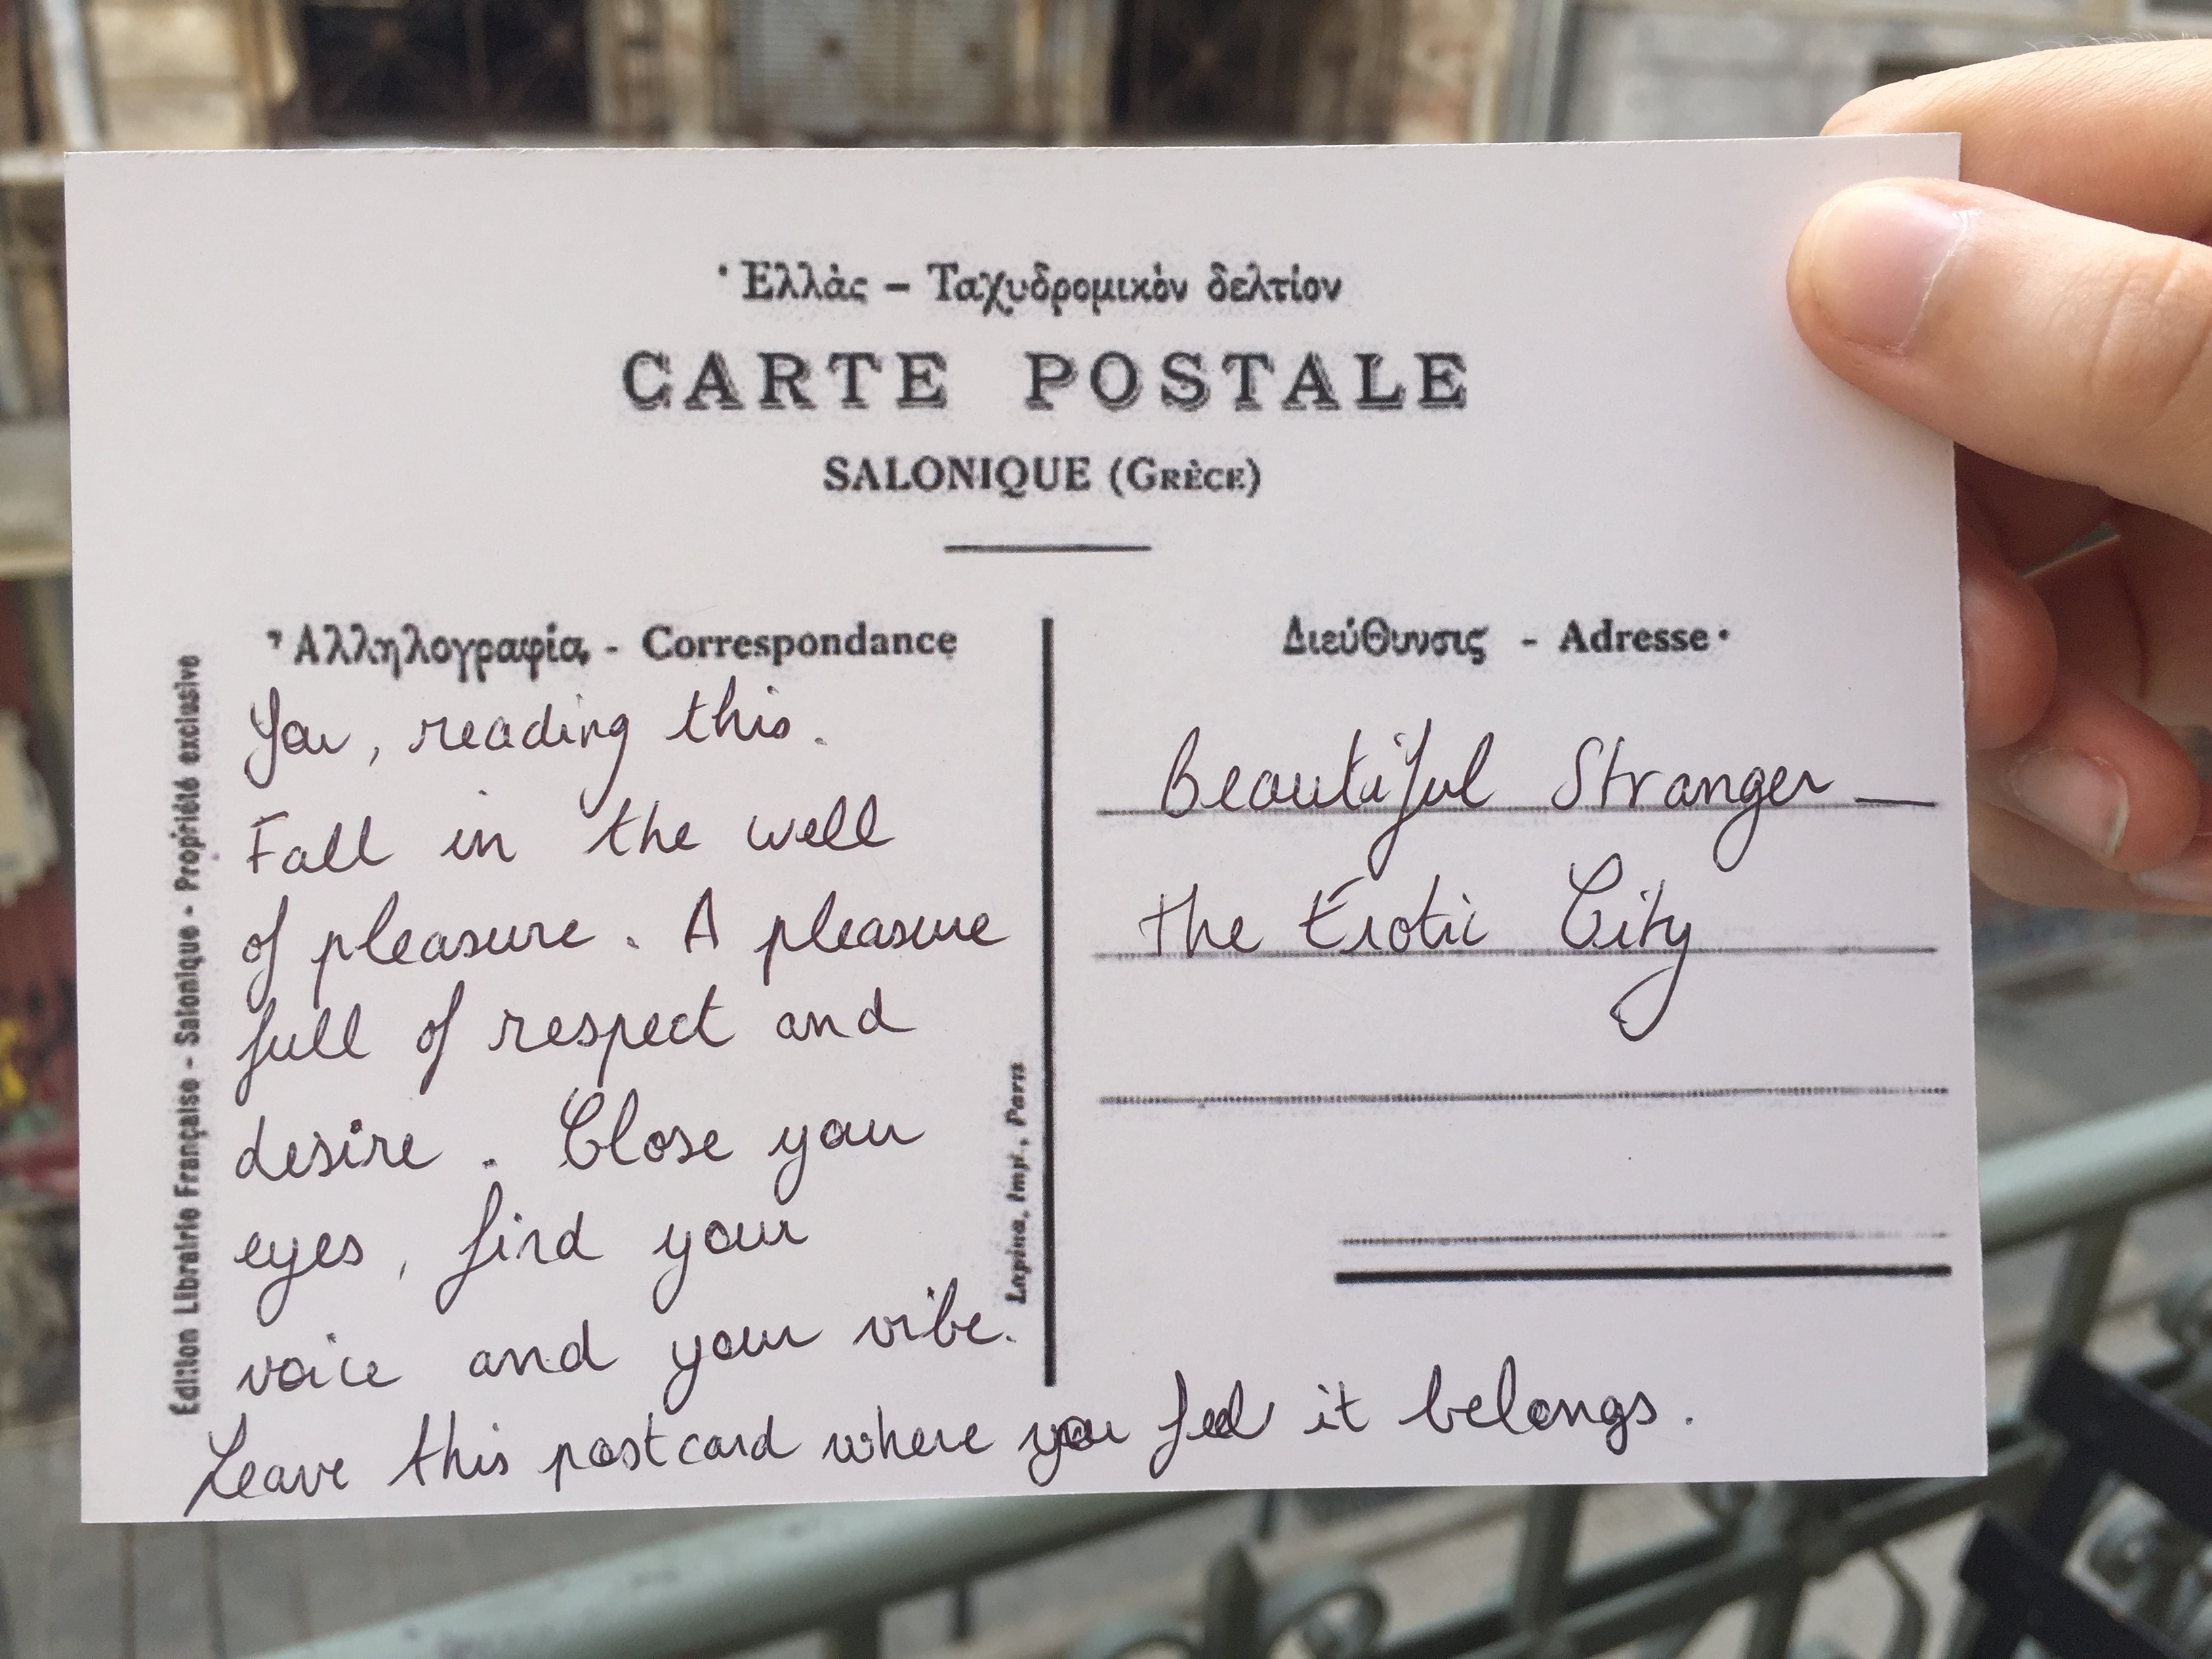 Ἑλλὰς – Ταχυδρομικὸν δελτίον
CARTE POSTALE
SALONIQUE (GRÈCE)
Ἀλληλογραφία, - Correspondance
You, reading this.
Fall in the well
of pleasure. A pleasure
full of respect and
desire. Close you
eyes, find your
voice and your vibe.
Leave this postcard where you feel it belongs.
Διεύθυνσις - Adresse
Beautiful Stranger
The Erotic City
Edition Librairie Française - Salonique - Propriété exclusive
Lapina, Imp., Paris